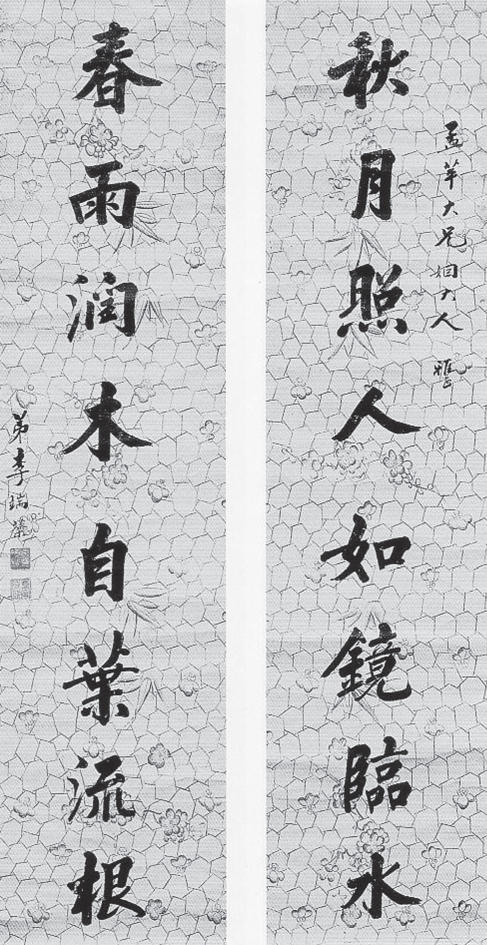 孟苹大兄姻大人 雅
秋月照人如鏡臨水
春雨潤木自葉流根
弟李瑞